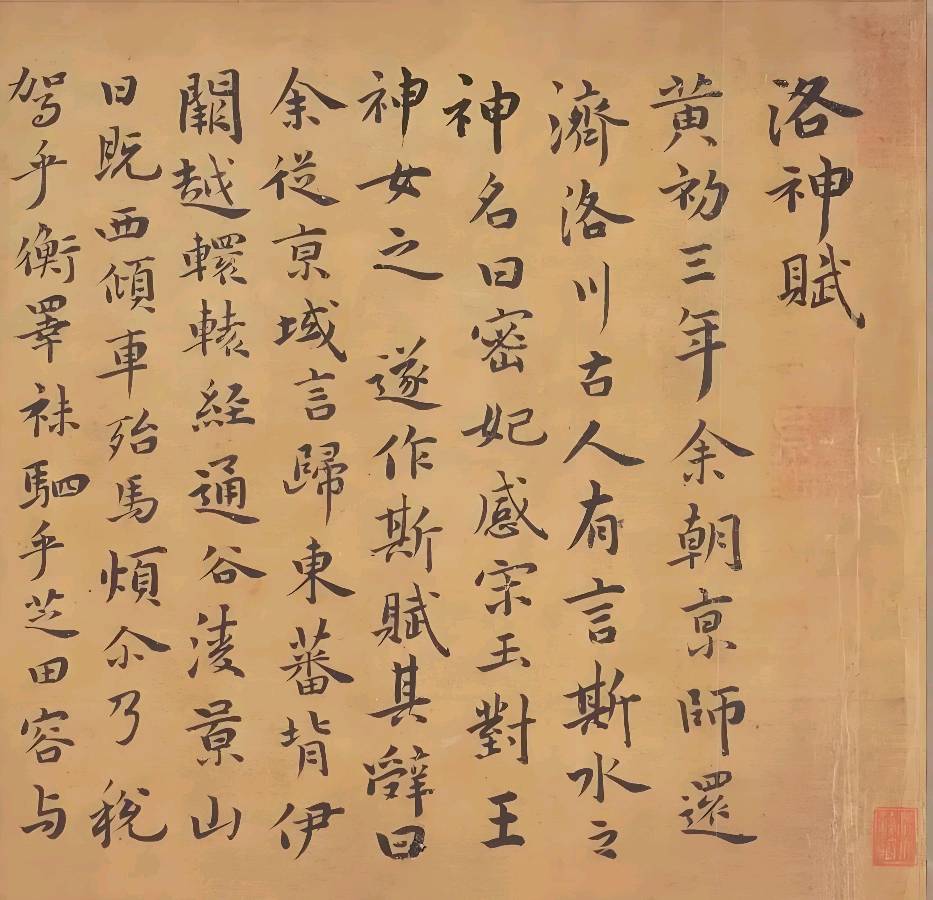 洛神賦
黄初三年余朝京師還
濟洛川古人有言斯水之
神名曰密妃感宗玉對王
神女之遂作斯賦其辭曰
余從京域言歸東蕃背伊
闕越轘轅経通谷淩景山
日既西傾車殆馬煩尒乃稅
駕乎衡睪袜駟乎芝田容与